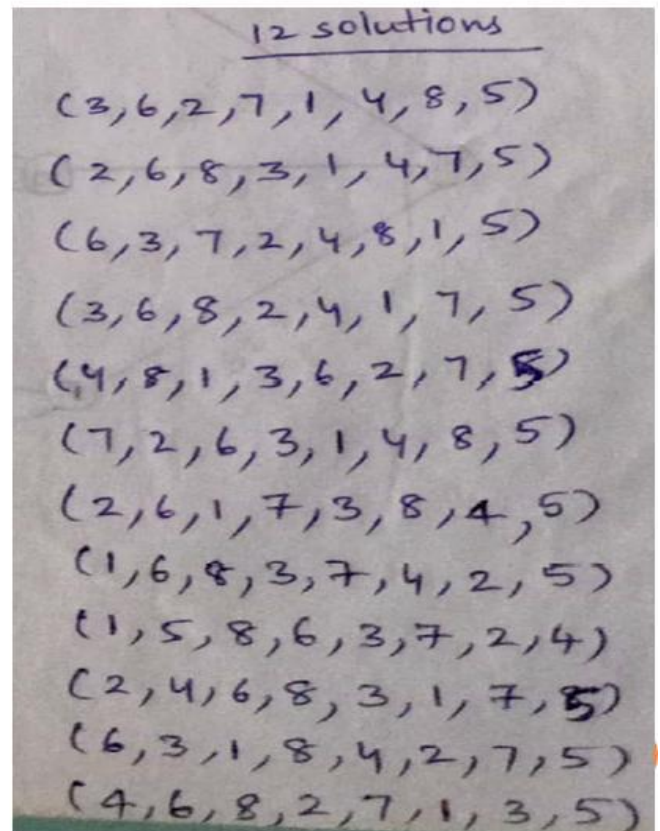 12 solutions
(3,6,2,7,1,4,8,5)
(2,6,8,3,1,4,7,5)
(6,3,7,2,4,8,1,5)
(3,6,8,2,4,1,7,5)
(4,8,1,3,6,2,7,5)
(7,2,6,3,1,4,8,5)
(2,6,1,7,3,8,4,5)
(1,6,8,3,7,4,2,5)
(1,5,8,6,3,7,2,4)
(2,4,6,8,3,1,7,5)
(6,3,1,8,4,2,7,5)
(4,6,8,2,7,1,3,5)